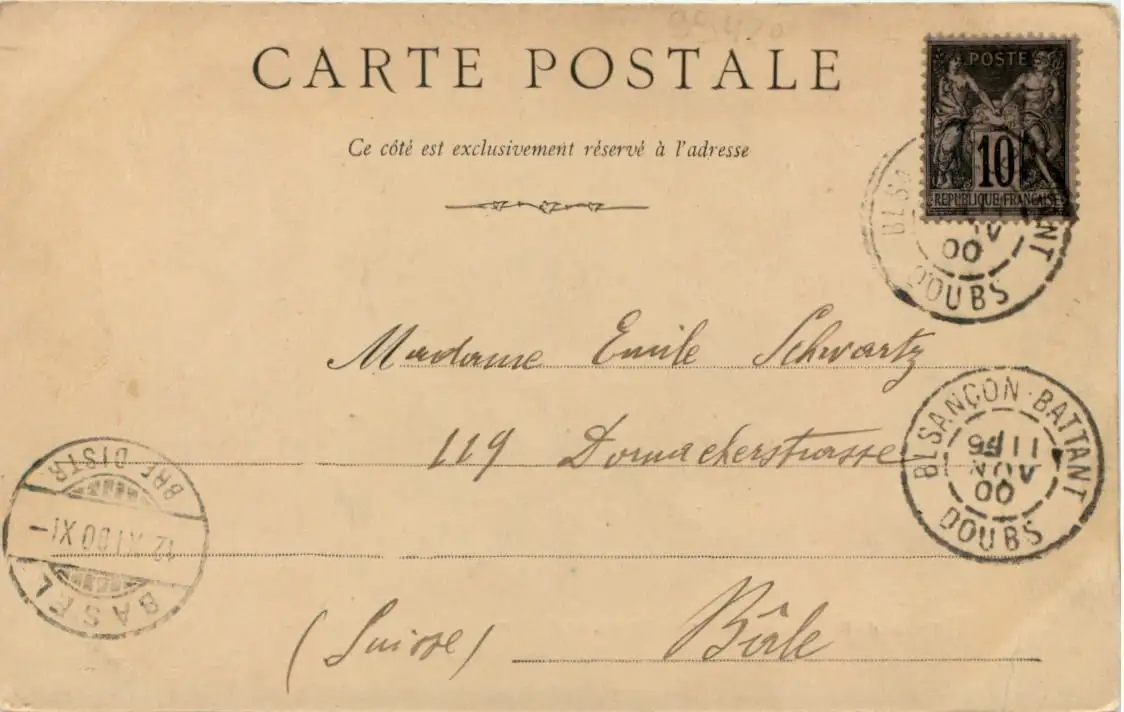 99420
CARTE POSTALE
Ce côté est exclusivement réservé à l'adresse
POSTE
10
REPUBLIQUE FRANÇAISE
DOUBS
00
Madame Emile Schwartz
119 Dornacherstrasse
BESANÇON-BATTANT
11
NOV
00
DOUBS
BRF. DISTR.
12 XI 00 XI-
BASEL
(Suisse) Bâle